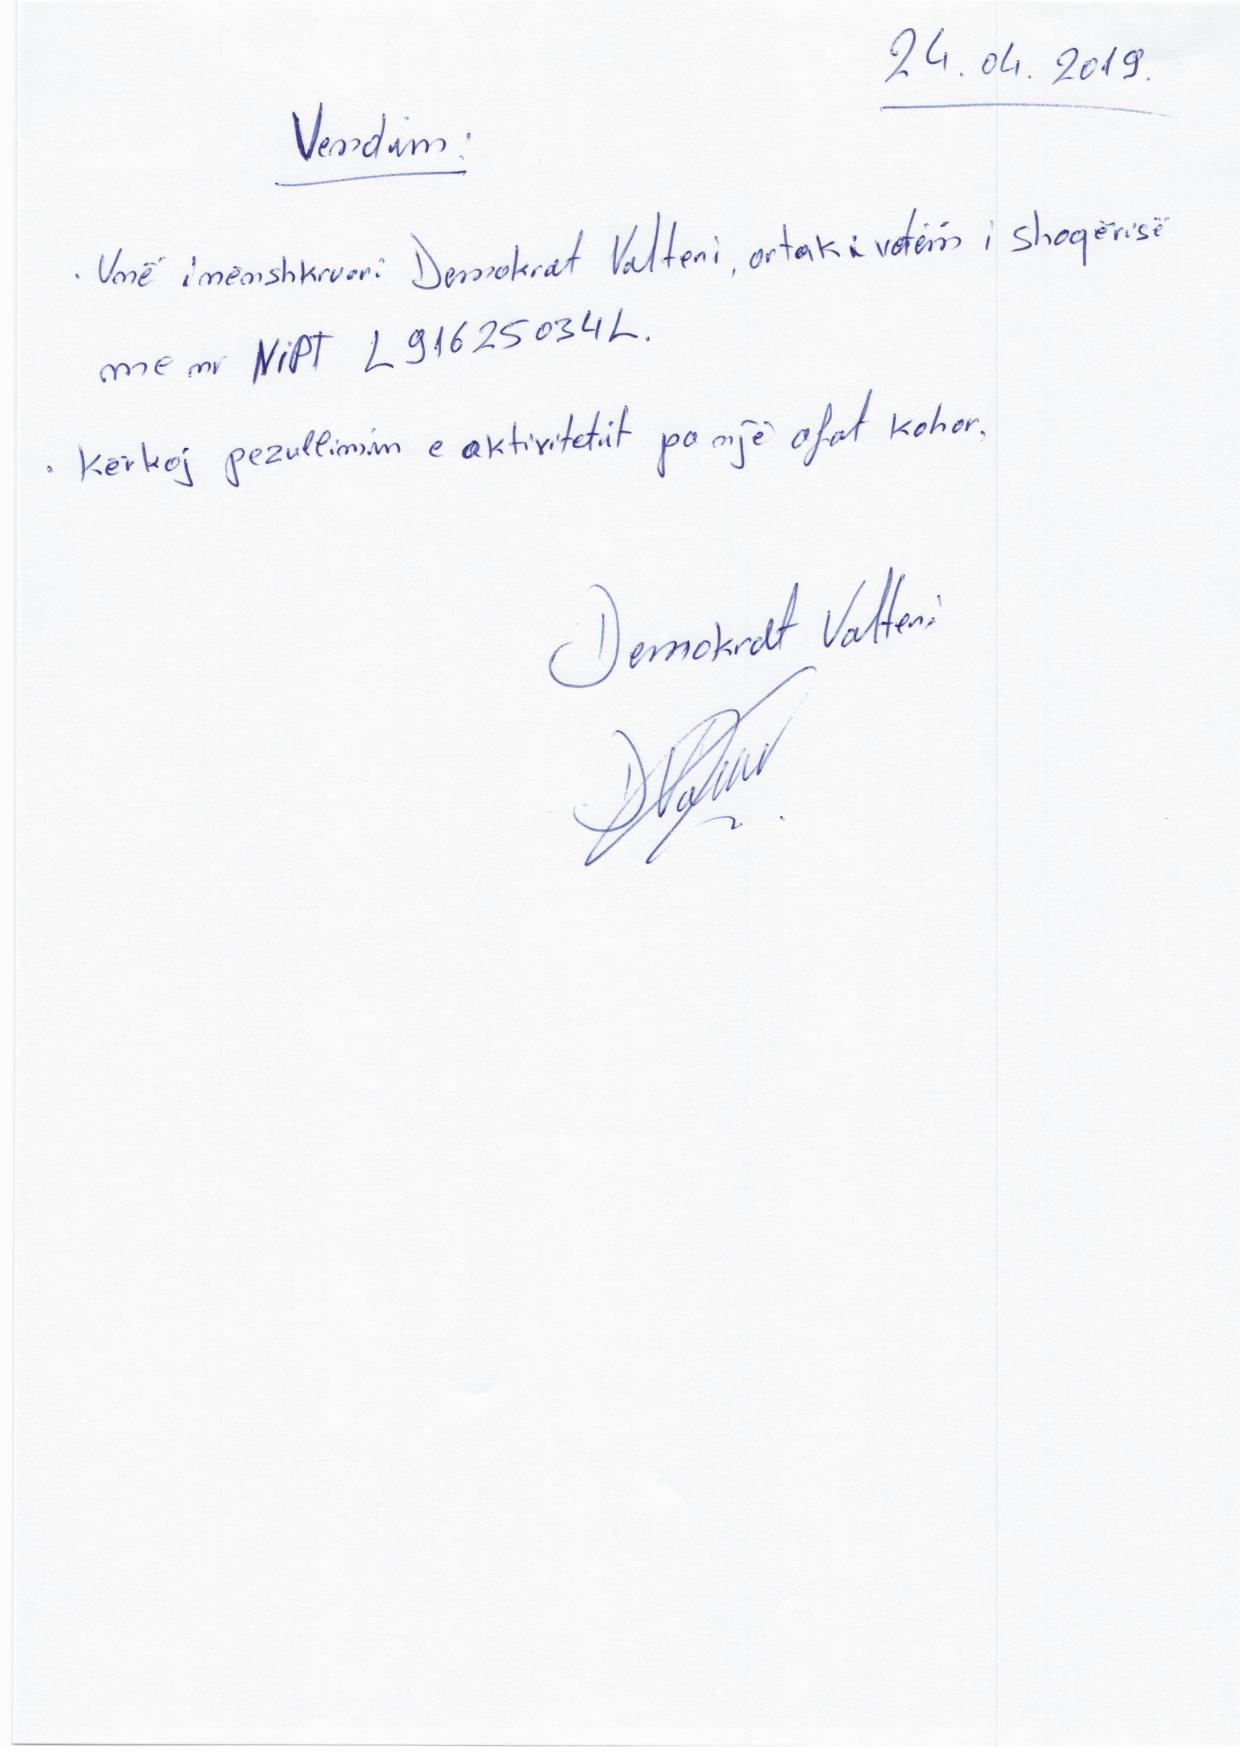 24.04.2019.
Vendim:
. Unë inënshkruari Demokrat Valteni, ortak i vetëm i shoqërisë
me nr NiPT L91625034L.
. Kërkoj pezullimin e aktivitetit pa një afat kohor.
Demokrat Valteni